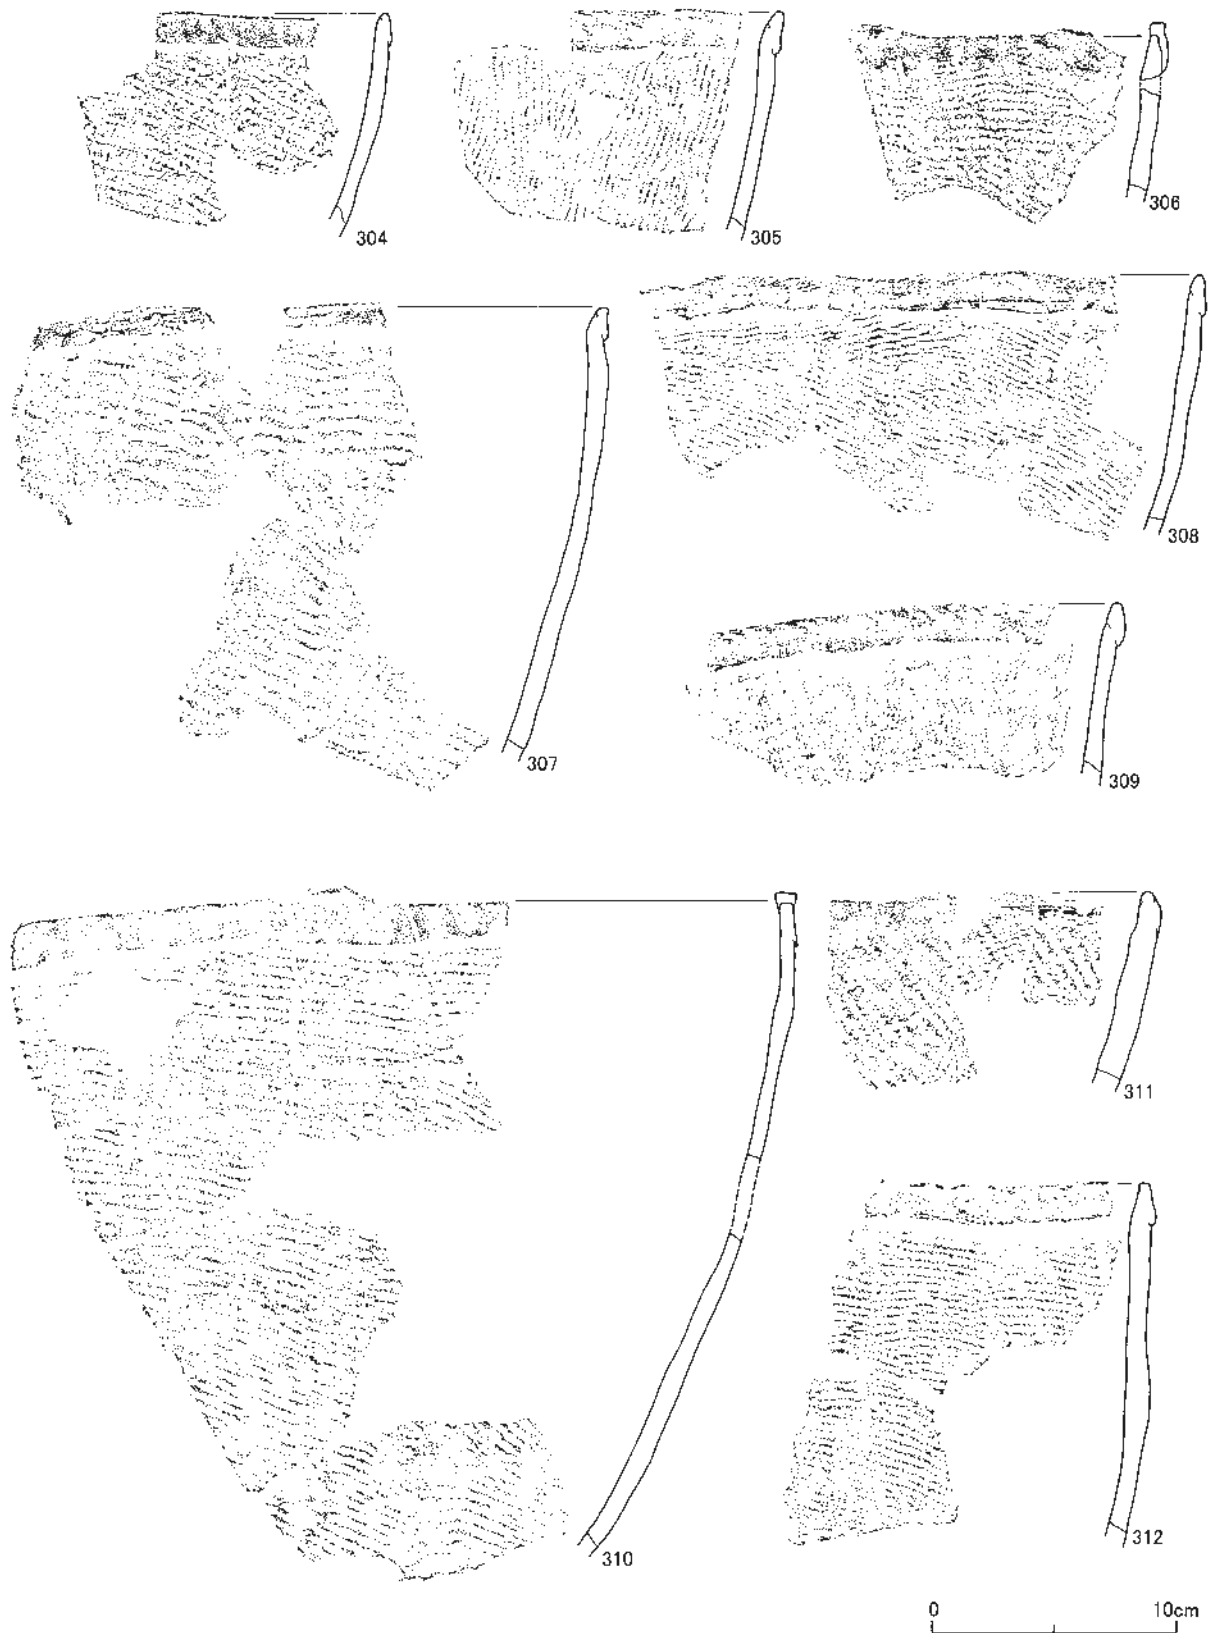 304
305
306
307
308
309
310
311
312
0 10cm